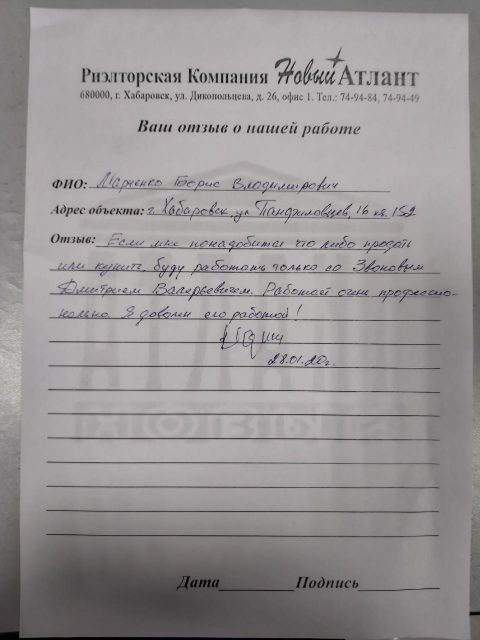 Риэлторская Компания Новый Атлант
680000, г. Хабаровск, ул. Дикопольцева, д. 26, офис 1. Тел.: 74-94-84, 74-94-49
Ваш отзыв о нашей работе
ФИО: Марченко Борис Владимирович
Адрес объекта: г. Хабаровск ул Панфиловцев, 16 кв. 152
Отзыв: Если мне понадобится что либо продать
или купить, буду работать только со Звоновым
Дмитрием Валерьевичем. Работает очень профессио-
нально. Я доволен его работой!
28.01.20г.
Дата Подпись